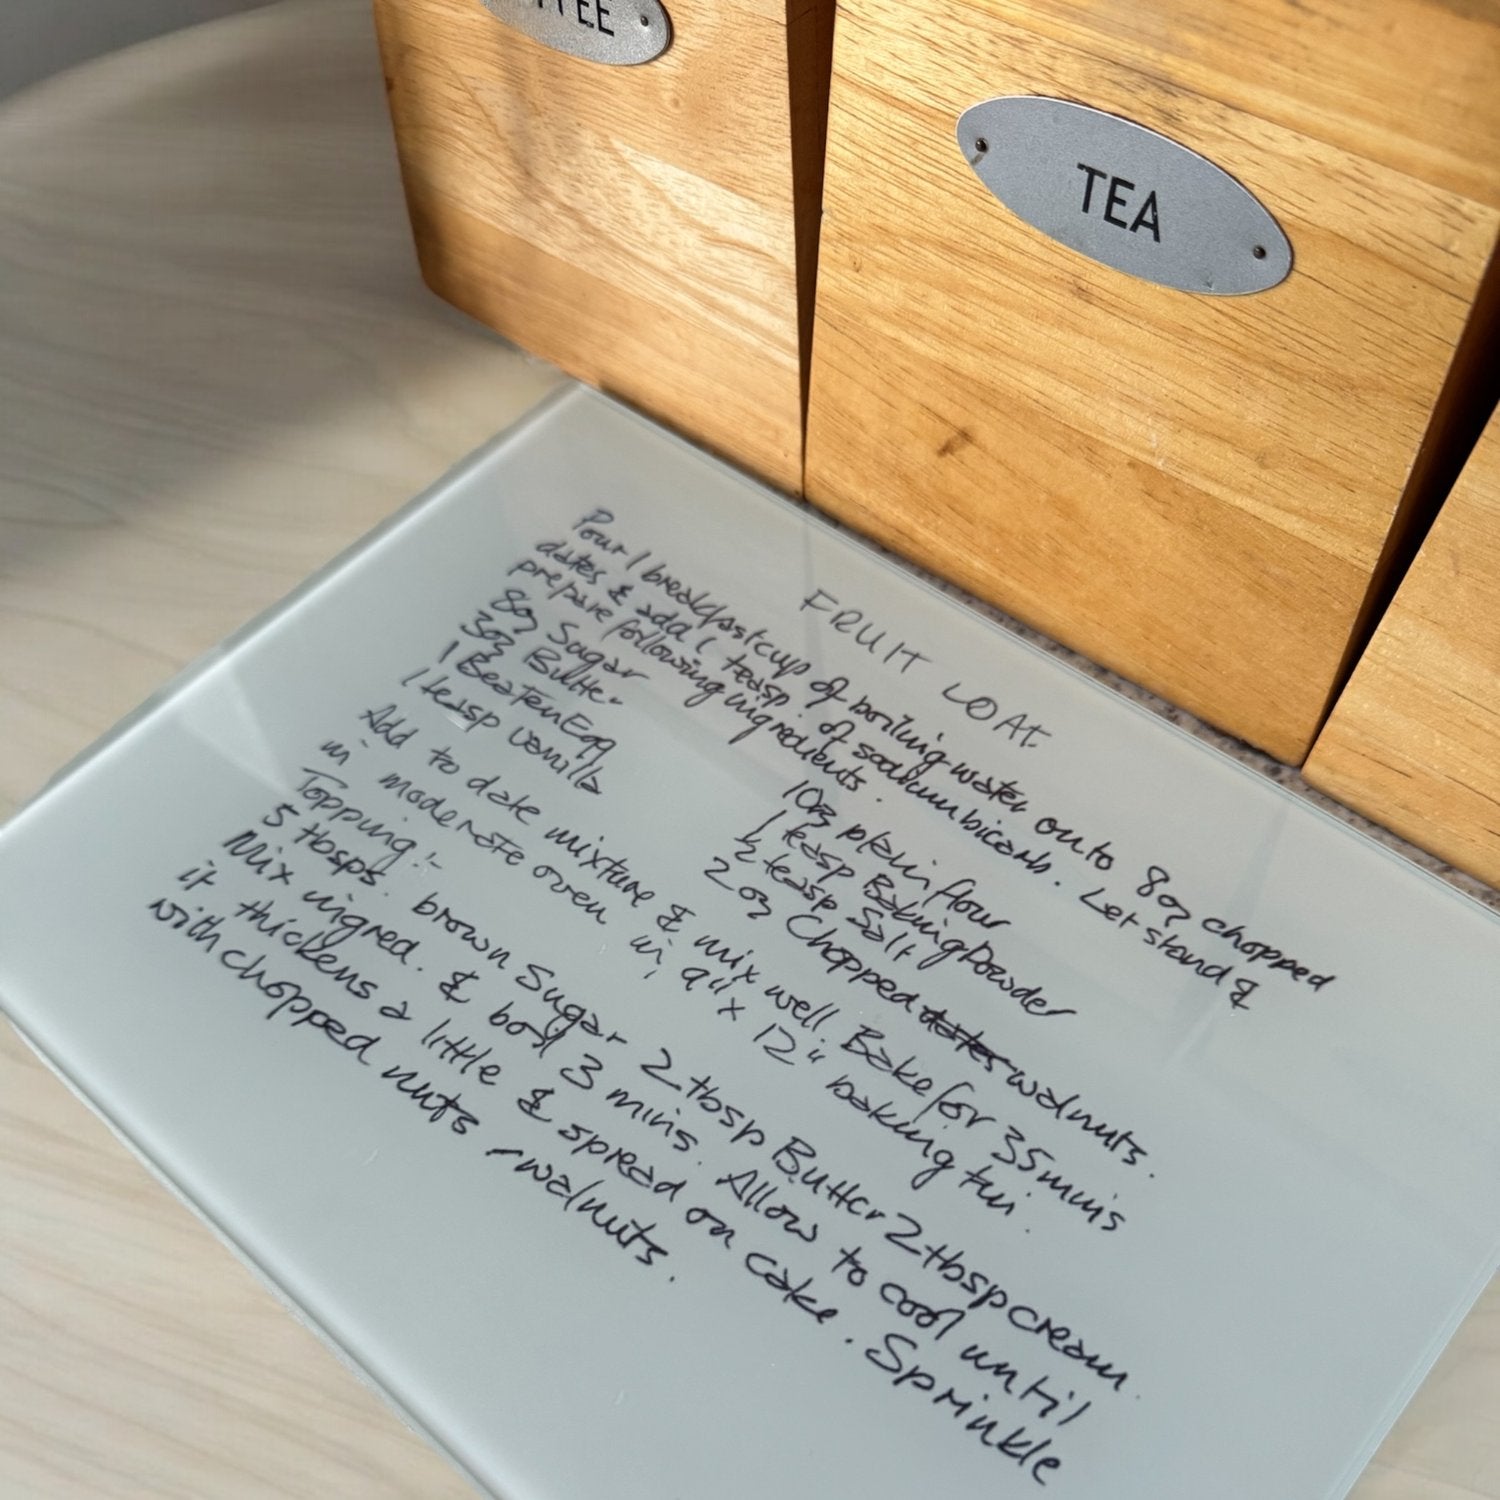 FFEE
TEA
FRUIT LOAF.
Pour 1 breakfastcup of boiling water onto 8oz chopped
dates & add 1 teasp. of sodium bicarb. Let stand &
prepare following ingredients.
8oz Sugar 10oz plain flour
3oz Butter 1 teasp Baking Powder
1 Beaten Egg ½ teasp Salt
1 teasp vanilla 2 oz Chopped dates walnuts.
Add to date mixture & mix well. Bake for 35 mins
in moderate oven in 9" x 12" baking tin.
Topping:-
5 tbsps. brown Sugar 2 tbsp Butter 2 tbsp cream.
Mix ingred. & boil 3 mins. Allow to cool until
it thickens a little & spread on cake. Sprinkle
with chopped nuts - walnuts.